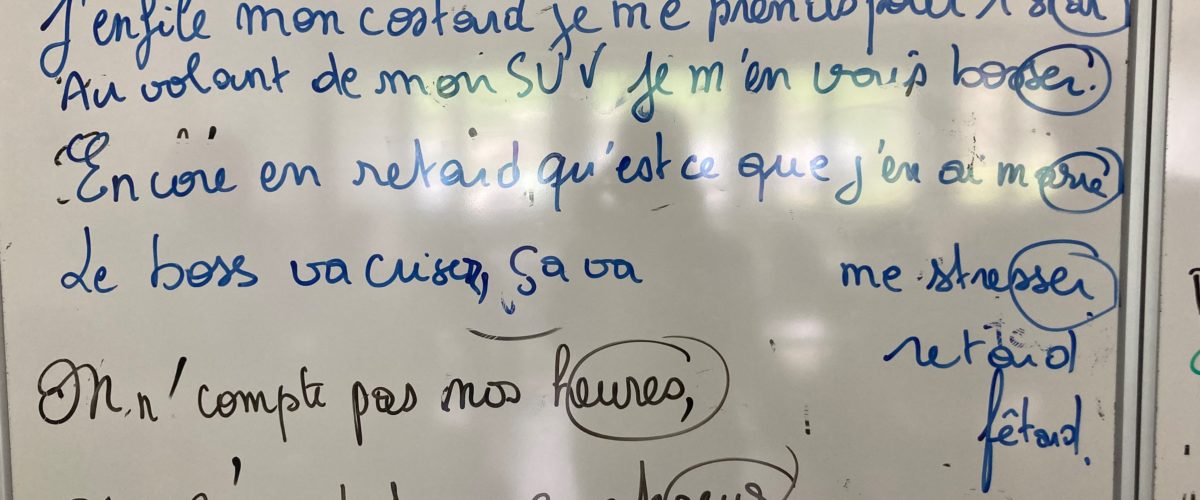 J'enfile mon costard je me prends pour 1 star
Au volant de mon SUV je m'en vais bosser.
Encore en retard qu'est ce que j'en ai marre
Le boss va criser, ça va me stresser.
retard
On n' compte pas nos heures,
fêtard.